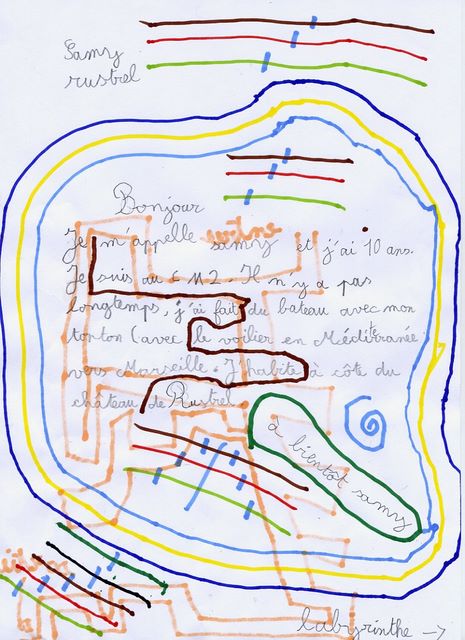 Samy
rustrel
Bonjour
Je m'appelle samy et j'ai 10 ans.
Je suis au C M2. Il n'y a pas
longtemps, j'ai fait du bateau avec mon
tonton (avec le voilier en Méditerranée
vers Marseille. J'habite à côte du
château de Rustrel
a bientôt samy
labyrinthe →